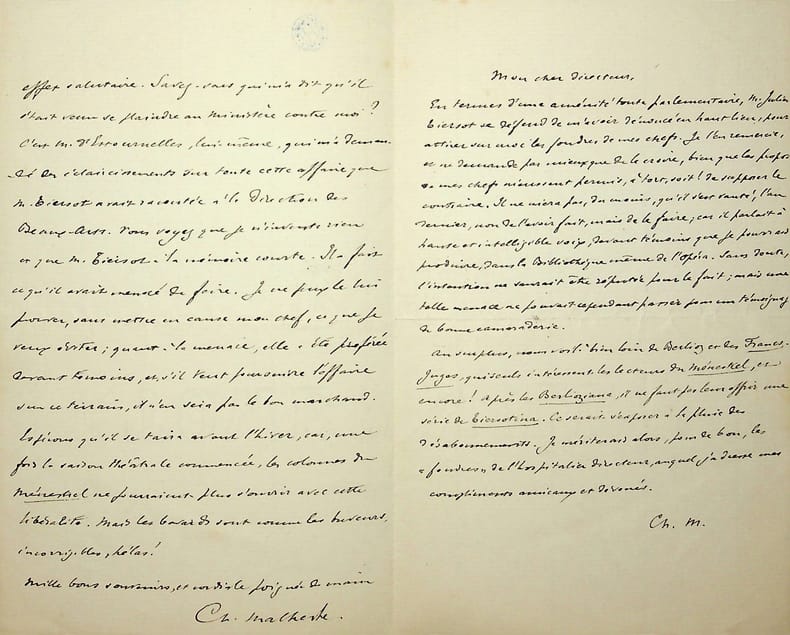 effet salutaire. Savez-vous qui m'a dit qu'il
était venu se plaindre au Ministère contre moi?
C'est M. d'Estournelles, lui-même, qui m'a deman-
dé des éclaircissements sur toute cette affaire que
M. Tiersot avait racontée à la Direction des
Beaux-Arts. Vous voyez que je n'invente rien
et que M. Tiersot a la mémoire courte. Il a fait
ce qu'il avait menacé de faire. Je ne puis le lui
prouver, sans mettre en cause mon chef, ce que je
veux éviter; quant à la menace, elle a été proférée
devant témoins, et, s'il veut poursuivre l'affaire
sur ce terrain, il n'en sera pas le bon marchand.
Espérons qu'il se taira avant l'hiver, car, une
fois la saison théâtrale commencée, les colonnes du
Ménestrel ne pourraient plus s'ouvrir avec cette
libéralité. Mais les bavards sont comme les buveurs,
incorrigibles, hélas!
Mille bons souvenirs, et cordiale poignée de main
Ch. Malherbe.
Mon cher directeur,
En termes d'une aménité toute parlementaire, M. Julien
Tiersot se défend de m'avoir dénoncé en haut lieu, pour
attirer sur moi les foudres de mes chefs. Je l'en remercie,
et ne demande pas mieux que de le croire, bien que les propos
de mes chefs m'eussent permis, à tort, soit! de supposer le
contraire. Il ne niera pas, du moins, qu'il s'est vanté, l'an
dernier, non de l'avoir fait, mais de le faire; car il parlait à
haute et intelligible voix, devant témoins que je pourrais
produire, dans la Bibliothèque même de l'Opéra. Sans doute,
l'intention ne saurait être réputée pour le fait; mais une
telle menace ne pouvait cependant passer pour un témoignage
de bonne camaraderie.
Au surplus, nous voilà bien loin de Berlioz et des Francs-
Juges, qui seuls intéressent les lecteurs du Ménestrel, et
encore! Après les Berlioziana, il ne faut pas leur offrir une
série de Tiersotina. Ce serait s'exposer à la pluie des
désabonnements. Je mériterais alors, pour de bon, les
« foudres » de l'hospitalier directeur, auquel j'adresse mes
compliments amicaux et dévoués.
Ch. M.